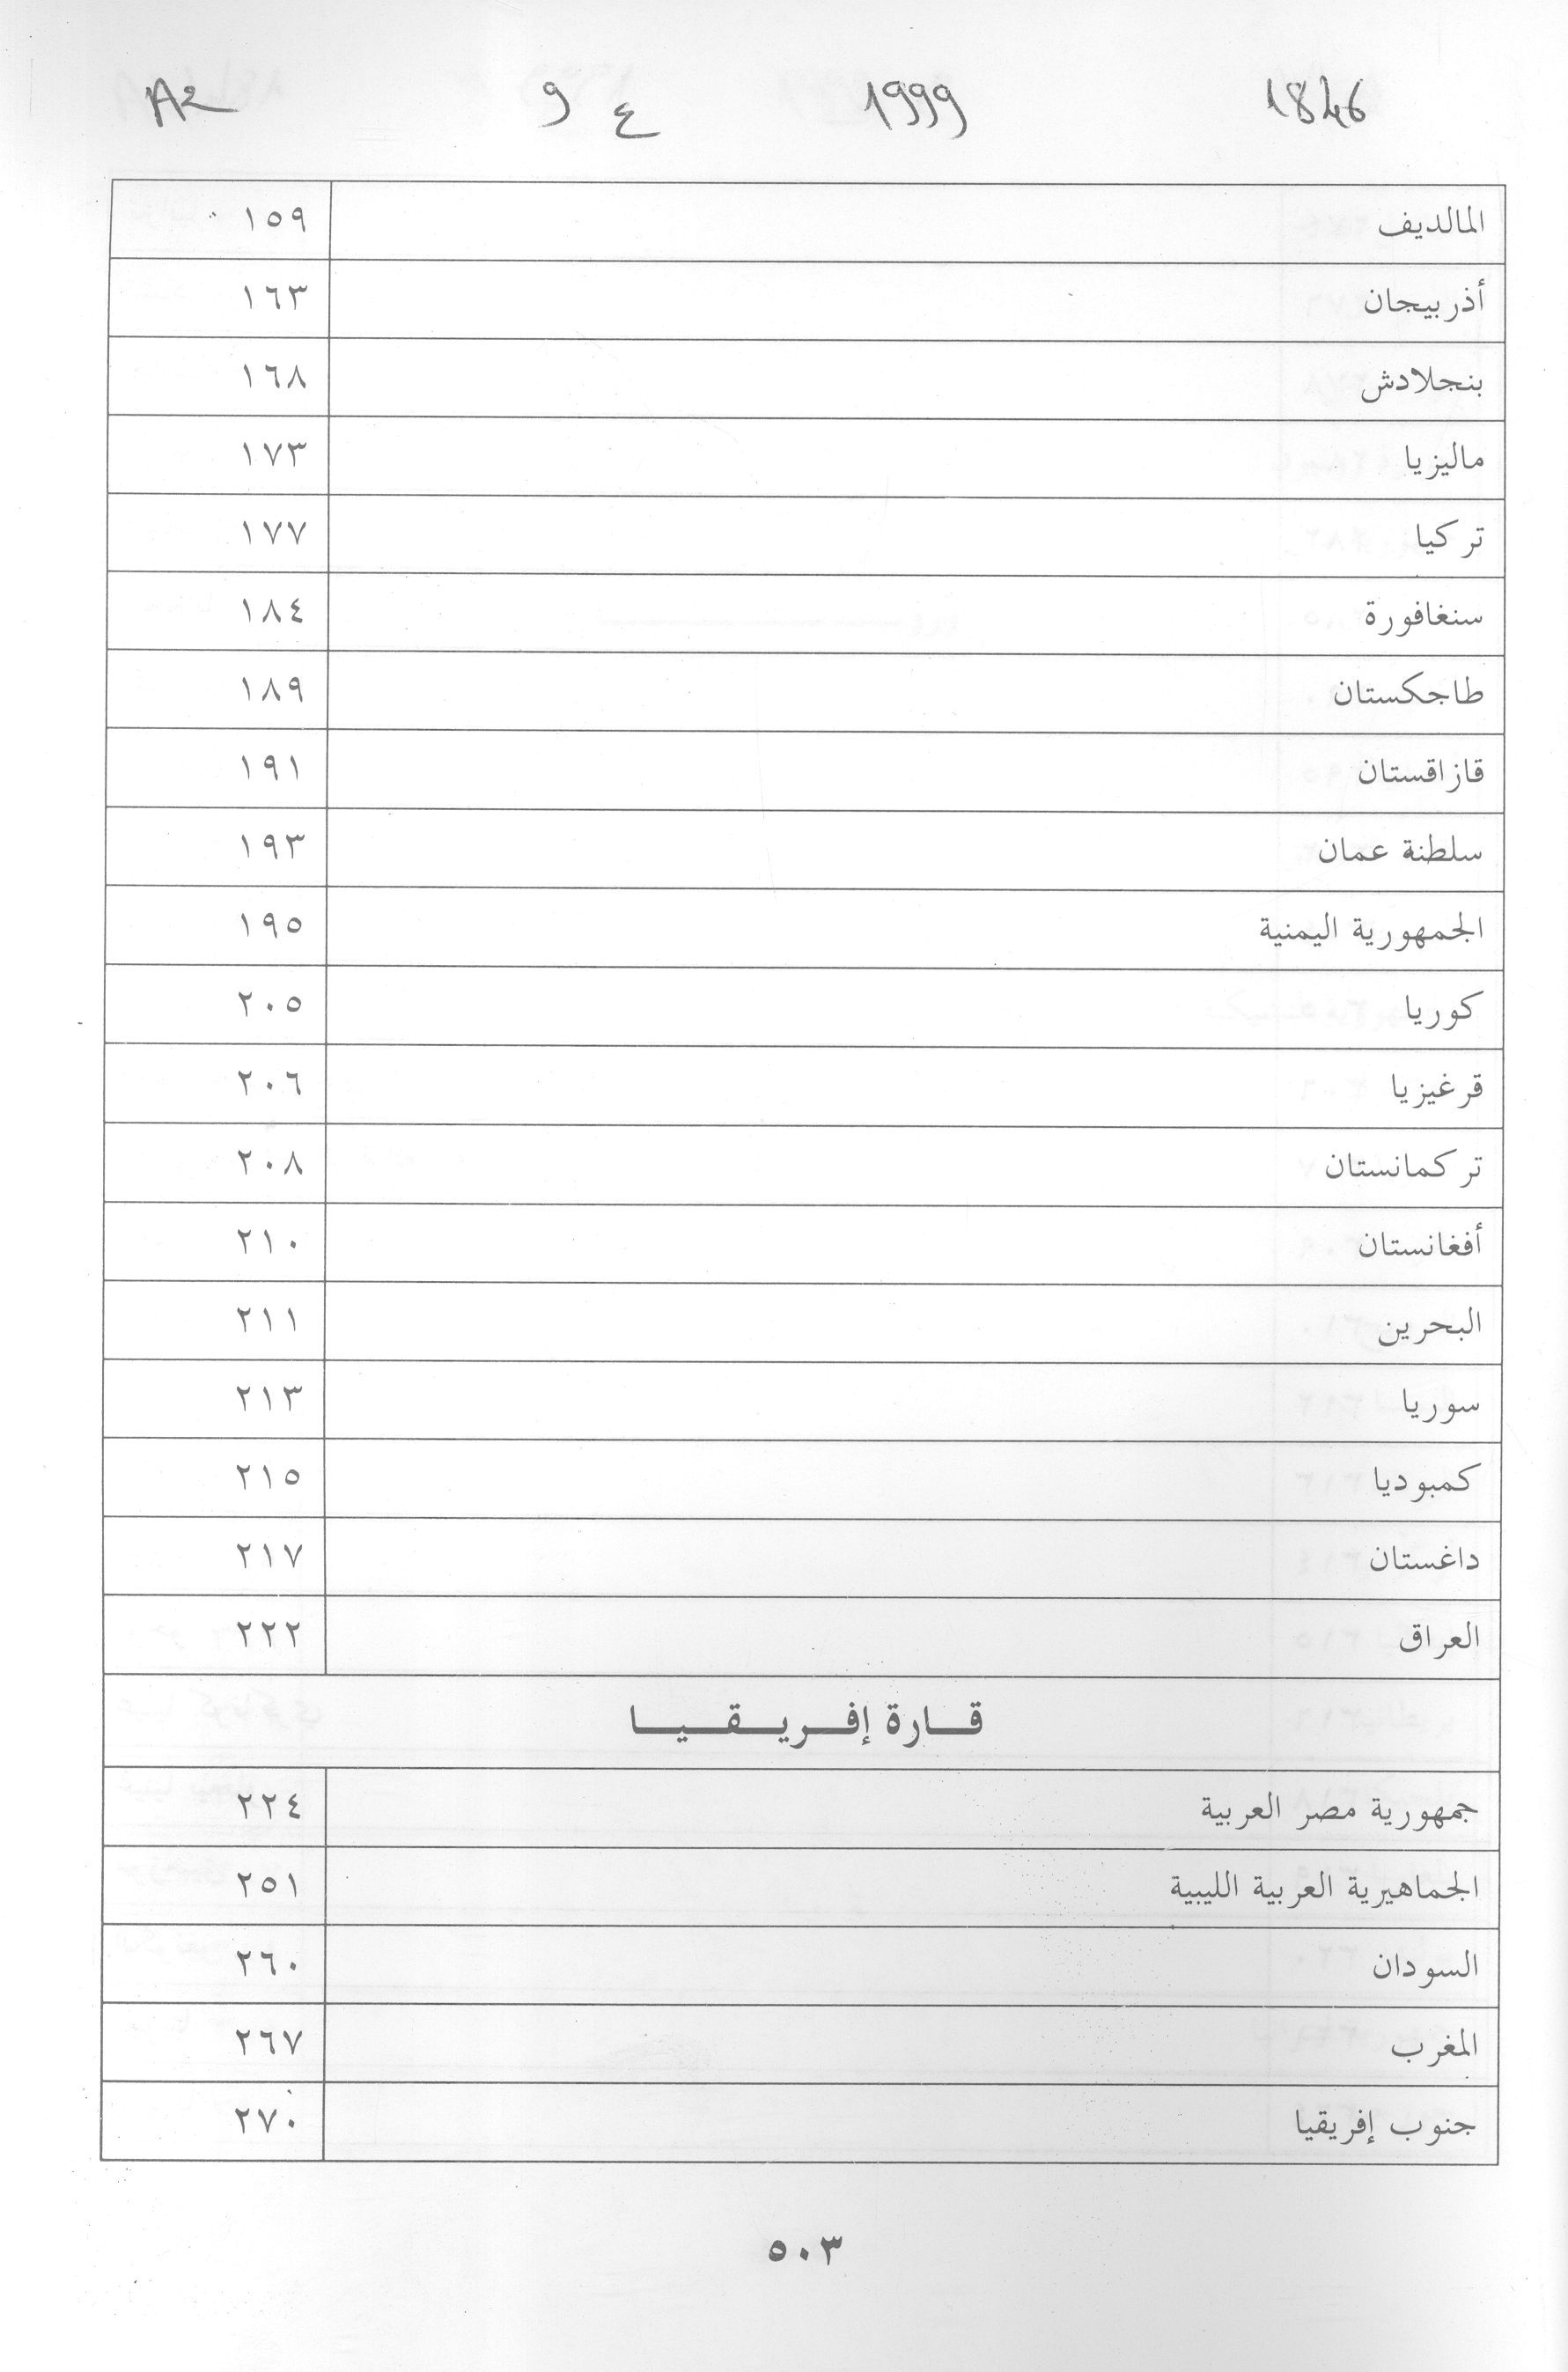 1846 1999 9 ع A2
المالديف ١٥٩
أذربيجان ١٦٣
بنجلادش ١٦٨
ماليزيا ١٧٣
تركيا ١٧٧
سنغافورة ١٨٤
طاجكستان ١٨٩
قازاقستان ١٩١
سلطنة عمان ١٩٣
الجمهورية اليمنية ١٩٥
كوريا ٢٠٥
قرغيزيا ٢٠٦
تركمانستان ٢٠٨
أفغانستان ٢١٠
البحرين ٢١١
سوريا ٢١٣
كمبوديا ٢١٥
داغستان ٢١٧
العراق ٢٢٢
قـارة إفـريـقـيـا
جمهورية مصر العربية ٢٢٤
الجماهيرية العربية الليبية ٢٥١
السودان ٢٦٠
المغرب ٢٦٧
جنوب إفريقيا ٢٧٠
٥٠٣